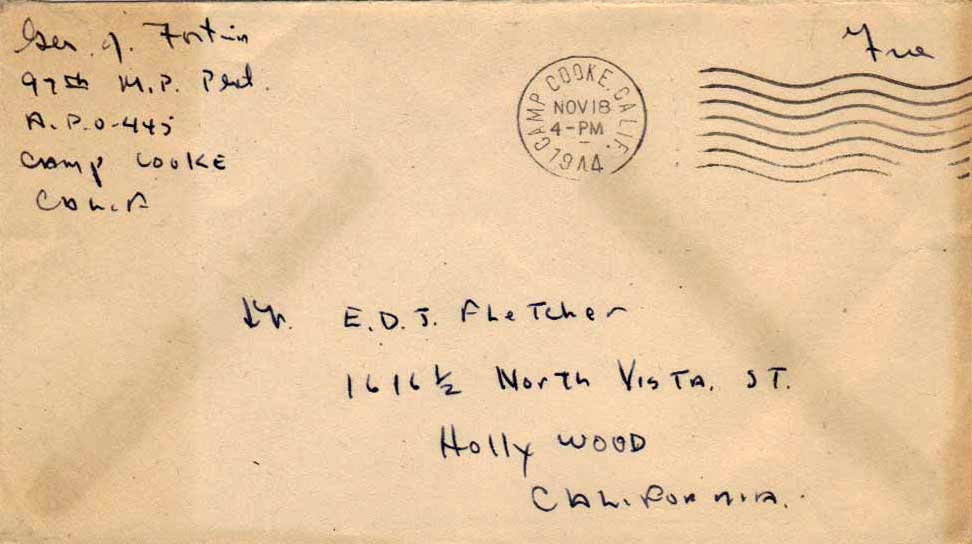 J. Fortin
97th M.P. Plat.
A.P.O-445
Camp Cooke
Calif
Free
CAMP COOKE, CALIF.
NOV 18
4-PM
1944
E.D.J. Fletcher
1616 ½ North Vista. ST.
Hollywood
California.